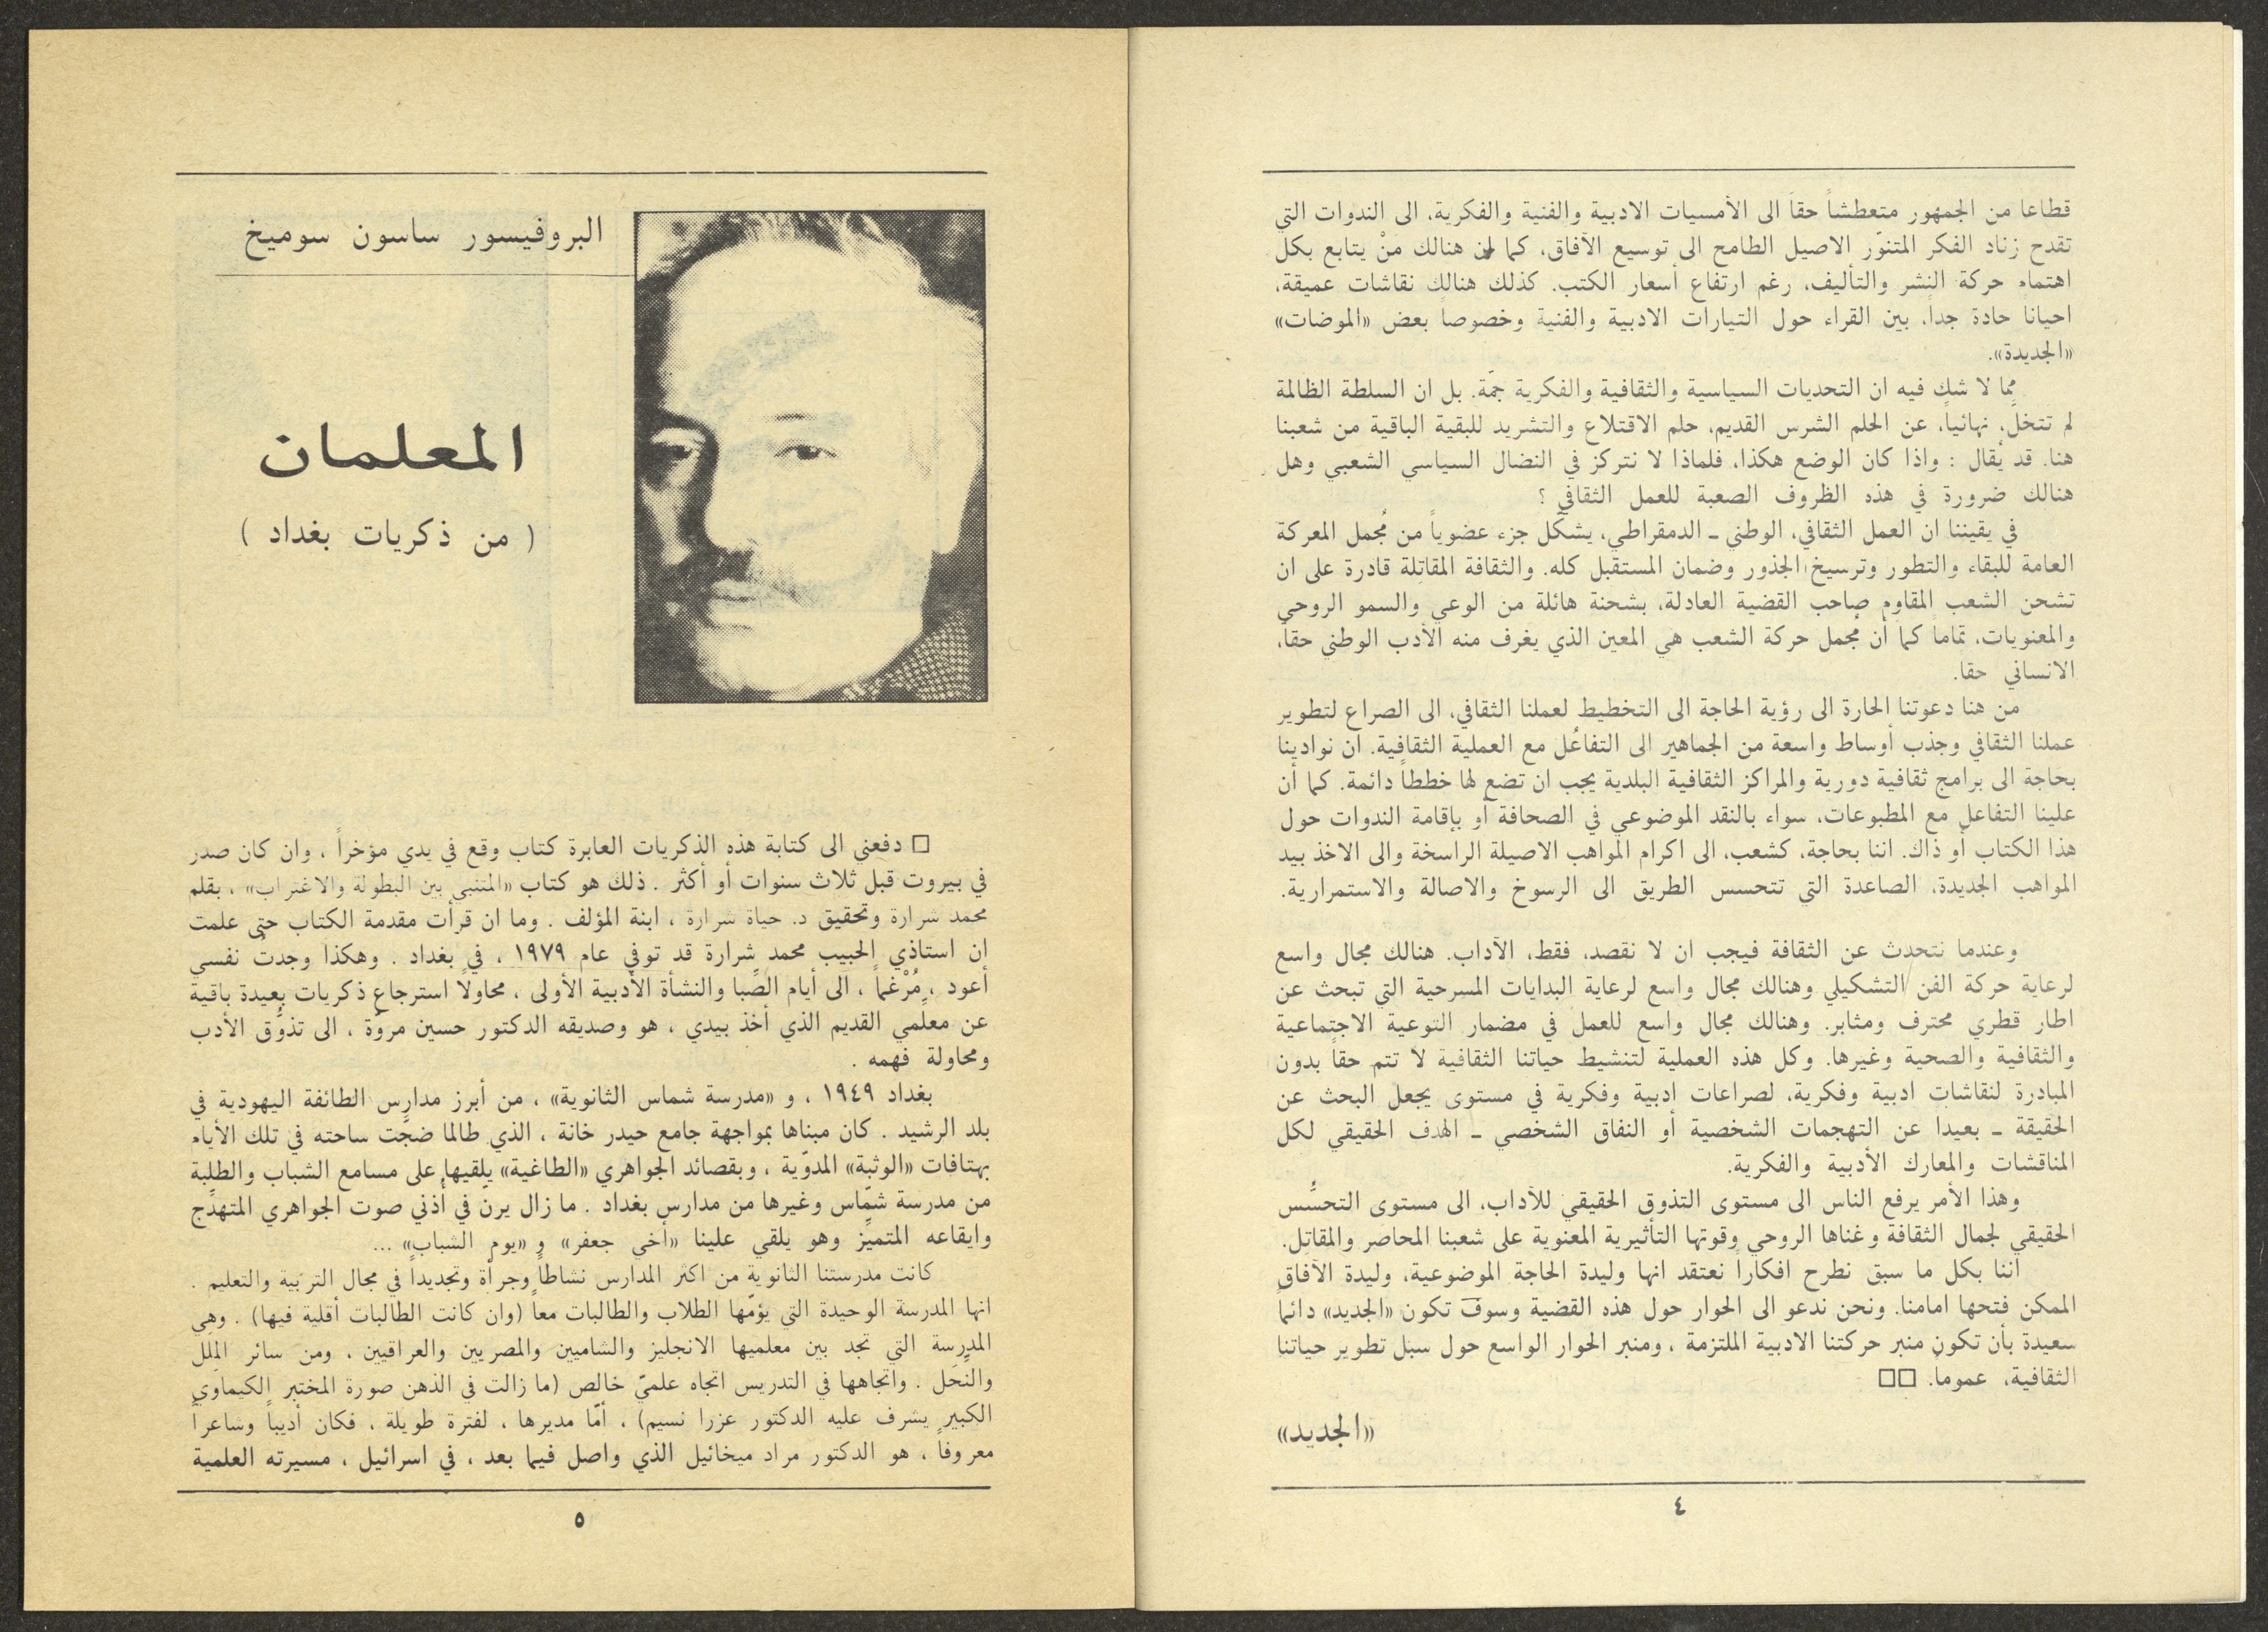 قطاعا من الجمهور متعطشاً حقاً الى الأمسيات الادبية والفنية والفكرية، الى الندوات التي
تقدح زناد الفكر المتنوّر الاصيل الطامح الى توسيع الآفاق، كما ان هنالك مَنْ يتابع بكل
اهتمام حركة النشر والتأليف، رغم ارتفاع أسعار الكتب. كذلك هنالك نقاشات عميقة،
احياناً حادة جداً، بين القراء حول التيارات الادبية والفنية وخصوصاً بعض «الموضات»
«الجديدة».
مما لا شك فيه ان التحديات السياسية والثقافية والفكرية جمّة. بل ان السلطة الظالمة
لم تتخلَّ، نهائياً، عن الحلم الشرس القديم، حلم الاقتلاع والتشريد للبقية الباقية من شعبنا
هنا. قد يُقال : واذا كان الوضع هكذا، فلماذا لا نتركز في النضال السياسي الشعبي وهل
هنالك ضرورة في هذه الظروف الصعبة للعمل الثقافي ؟
في يقيننا ان العمل الثقافي، الوطني ـ الدمقراطي، يشكّل جزء عضوياً من مُجمل المعركة
العامة للبقاء والتطور وترسيخ الجذور وضمان المستقبل كله. والثقافة المقاتِلة قادرة على ان
تشحن الشعب المقاوم صاحب القضية العادلة، بشحنة هائلة من الوعي والسمو الروحي
والمعنويات، تماماً كما أن مُجمل حركة الشعب هي المعين الذي يغرف منه الأدب الوطني حقاً،
الانساني حقا.
من هنا دعوتنا الحارة الى رؤية الحاجة الى التخطيط لعملنا الثقافي، الى الصراع لتطوير
عملنا الثقافي وجذب أوساط واسعة من الجماهير الى التفاعُل مع العملية الثقافية. ان نوادينا
بحاجة الى برامج ثقافية دورية والمراكز الثقافية البلدية يجب ان تضع لها خططاً دائمة. كما أن
علينا التفاعل مع المطبوعات، سواء بالنقد الموضوعي في الصحافة أو بإقامة الندوات حول
هذا الكتاب أو ذاك. اننا بحاجة، كشعب، الى اكرام المواهب الاصيلة الراسخة والى الاخذ بيد
المواهب الجديدة، الصاعدة التي تتحسس الطريق الى الرسوخ والاصالة والاستمرارية.
وعندما نتحدث عن الثقافة فيجب ان لا نقصد، فقط، الآداب. هنالك مجال واسع
لرعاية حركة الفن التشكيلي وهنالك مجال واسع لرعاية البدايات المسرحية التي تبحث عن
اطار قطري محترف ومثابر. وهنالك مجال واسع للعمل في مضمار التوعية الاجتماعية
والثقافية والصحية وغيرها. وكل هذه العملية لتنشيط حياتنا الثقافية لا تتم حقاً بدون
المبادرة لنقاشات ادبية وفكرية، لصراعات ادبية وفكرية في مستوى يجعل البحث عن
الحقيقة ـ بعيدا عن التهجمات الشخصية أو النفاق الشخصي ـ الهدف الحقيقي لكل
المناقشات والمعارك الأدبية والفكرية.
وهذا الأمر يرفع الناس الى مستوى التذوق الحقيقي للآداب، الى مستوى التحسُّس
الحقيقي لجمال الثقافة وغناها الروحي وقوتها التأثيرية المعنوية على شعبنا المحاصر والمقاتل.
اننا بكل ما سبق نطرح افكاراً نعتقد انها وليدة الحاجة الموضوعية، وليدة الآفاق
الممكن فتحها امامنا. ونحن ندعو الى الحوار حول هذه القضية وسوف تكون «الجديد» دائما
سعيدة بأن تكون منبر حركتنا الادبية الملتزمة ، ومنبر الحوار الواسع حول سبل تطوير حياتنا
الثقافية، عموماً. □□
«الجديد»
٤
البروفيسور ساسون سوميخ
المعلمان
( من ذكريات بغداد )
□ دفعني الى كتابة هذه الذكريات العابرة كتاب وقع في يدي مؤخراً ، وان كان صدر
في بيروت قبل ثلاث سنوات أو أكثر . ذلك هو كتاب «المتنبي بين البطولة والاغتراب» ، بقلم
محمد شرارة وتحقيق د. حياة شرارة ، ابنة المؤلف . وما ان قرأت مقدمة الكتاب حتى علمت
ان استاذي الحبيب محمد شرارة قد توفي عام ١٩٧٩ ، في بغداد . وهكذا وجدتُ نفسي
أعود ، مُرْغماً ، الى أيام الصِّبا والنشأة الأدبية الأولى ، محاولاً استرجاع ذكريات بعيدة باقية
عن معلمي القديم الذي أخذ بيدي ، هو وصديقه الدكتور حسين مروّة ، الى تذوُّق الأدب
ومحاولة فهمه .
بغداد ١٩٤٩ ، و «مدرسة شماس الثانوية» ، من أبرز مدارس الطائفة اليهودية في
بلد الرشيد . كان مبناها بمواجهة جامع حيدر خانة ، الذي طالما ضجّت ساحته في تلك الأيام
بهتافات «الوثبة» المدوّية ، وبقصائد الجواهري «الطاغية» يلقيها على مسامع الشباب والطلبة
من مدرسة شمّاس وغيرها من مدارس بغداد . ما زال يرنّ في أذني صوت الجواهري المتهدّج
وايقاعه المتميّز وهو يلقي علينا «أخي جعفر» و «يوم الشباب» ...
كانت مدرستنا الثانوية من اكثر المدارس نشاطاً وجرأة وتجديداً في مجال التربية والتعليم .
انها المدرسة الوحيدة التي يؤمّها الطلاب والطالبات معاً (وان كانت الطالبات أقلية فيها) . وهي
المدرسة التي تجد بين معلميها الانجليز والشاميين والمصريين والعراقيين ، ومن سائر المِلَل
والنحَل . واتجاهها في التدريس اتجاه علميّ خالص (ما زالت في الذهن صورة المختبر الكيماوي
الكبير يشرف عليه الدكتور عزرا نسيم) ، أمّا مديرها ، لفترة طويلة ، فكان أديباً وشاعراً
معروفاً ، هو الدكتور مراد ميخائيل الذي واصل فيما بعد ، في اسرائيل ، مسيرته العلمية
٥